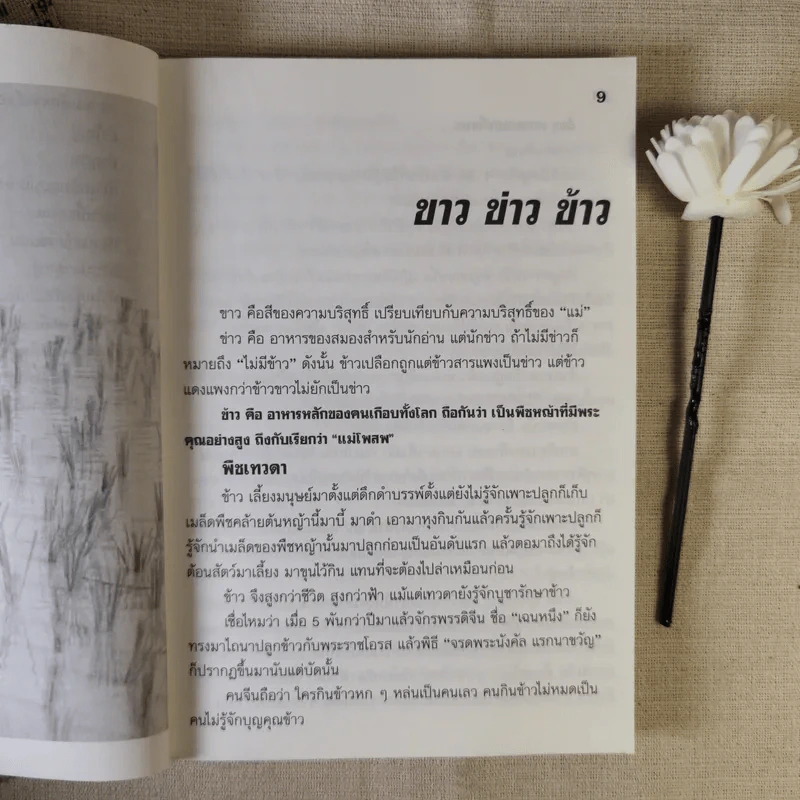 9
ขาว ข่าว ข้าว
ขาว คือสีของความบริสุทธิ์ เปรียบเทียบกับความบริสุทธิ์ของ “แม่”
ข่าว คือ อาหารของสมองสำหรับนักอ่าน แต่นักข่าว ถ้าไม่มีข่าวก็
หมายถึง “ไม่มีข้าว” ดังนั้น ข้าวเปลือกถูกแต่ข้าวสารแพงเป็นข่าว แต่ข้าว
แดงแพงกว่าข้าวขาวไม่ยักเป็นข่าว
ข้าว คือ อาหารหลักของคนเกือบทั้งโลก ถือกันว่า เป็นพืชหญ้าที่มีพระ
คุณอย่างสูง ถึงกับเรียกว่า “แม่โพสพ”
พืชเทวดา
ข้าว เลี้ยงมนุษย์มาตั้งแต่ดึกดำบรรพ์ตั้งแต่ยังไม่รู้จักเพาะปลูกก็เก็บ
เมล็ดพืชคล้ายต้นหญ้านี้มาบี้ มาตำ เอามาหุงกินกันแล้วครั้นรู้จักเพาะปลูกก็
รู้จักนำเมล็ดของพืชหญ้านั้นมาปลูกก่อนเป็นอันดับแรก แล้วตอมาถึงได้รู้จัก
ต้อนสัตว์มาเลี้ยง มาขุนไว้กิน แทนที่จะต้องไปล่าเหมือนก่อน
ข้าว จึงสูงกว่าชีวิต สูงกว่าฟ้า แม้แต่เทวดายังรู้จักบูชารักษาข้าว
เชื่อไหมว่า เมื่อ 5 พันกว่าปีมาแล้วจักรพรรดิจีน ชื่อ “เฉนหนึง” ก็ยัง
ทรงมาไถนาปลูกข้าวกับพระราชโอรส แล้วพิธี “จรดพระนังคัล แรกนาขวัญ”
ก็ปรากฏขึ้นมานับแต่บัดนั้น
คนจีนถือว่า ใครกินข้าวหก ๆ หล่นเป็นคนเลว คนกินข้าวไม่หมดเป็น
คนไม่รู้จักบุญคุณข้าว